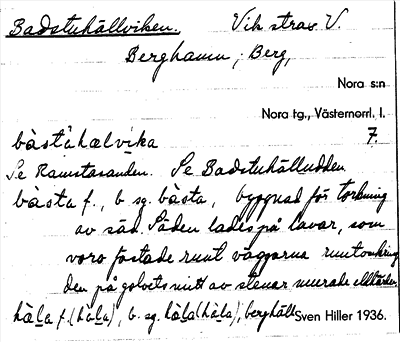 Badstuhällviken. Vik strax V.
Berghamn, Berg,
Nora s:n
Nora tg., Västernorrl. l.
bàståhælvika 7.
Se Ramstasanden. Se Badstuhälludden.
bàsta f., b. sg. bàsta, byggnad för torkning
av säd. Säden lades på lavar, som
voro fästade runt väggarna runtomkring
den på golvets mitt av stenar murade eldstaden.
hàla f. (hàla), b. sg. hàla (hàla), berghäll
Sven Hiller 1936.